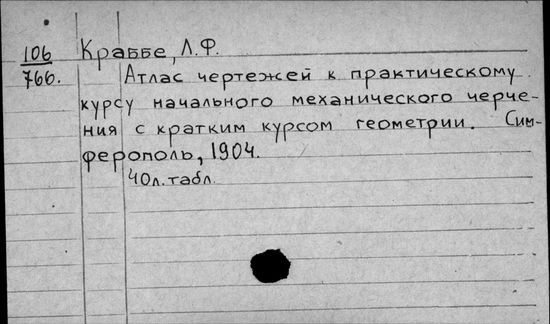 106 Краббе, Л.Ф.
766. Атлас чертежей к практическому
курсу начального механического черче-
ния с кратким курсом геометрии. Сим-
ферополь, 1904.
40л.табл.